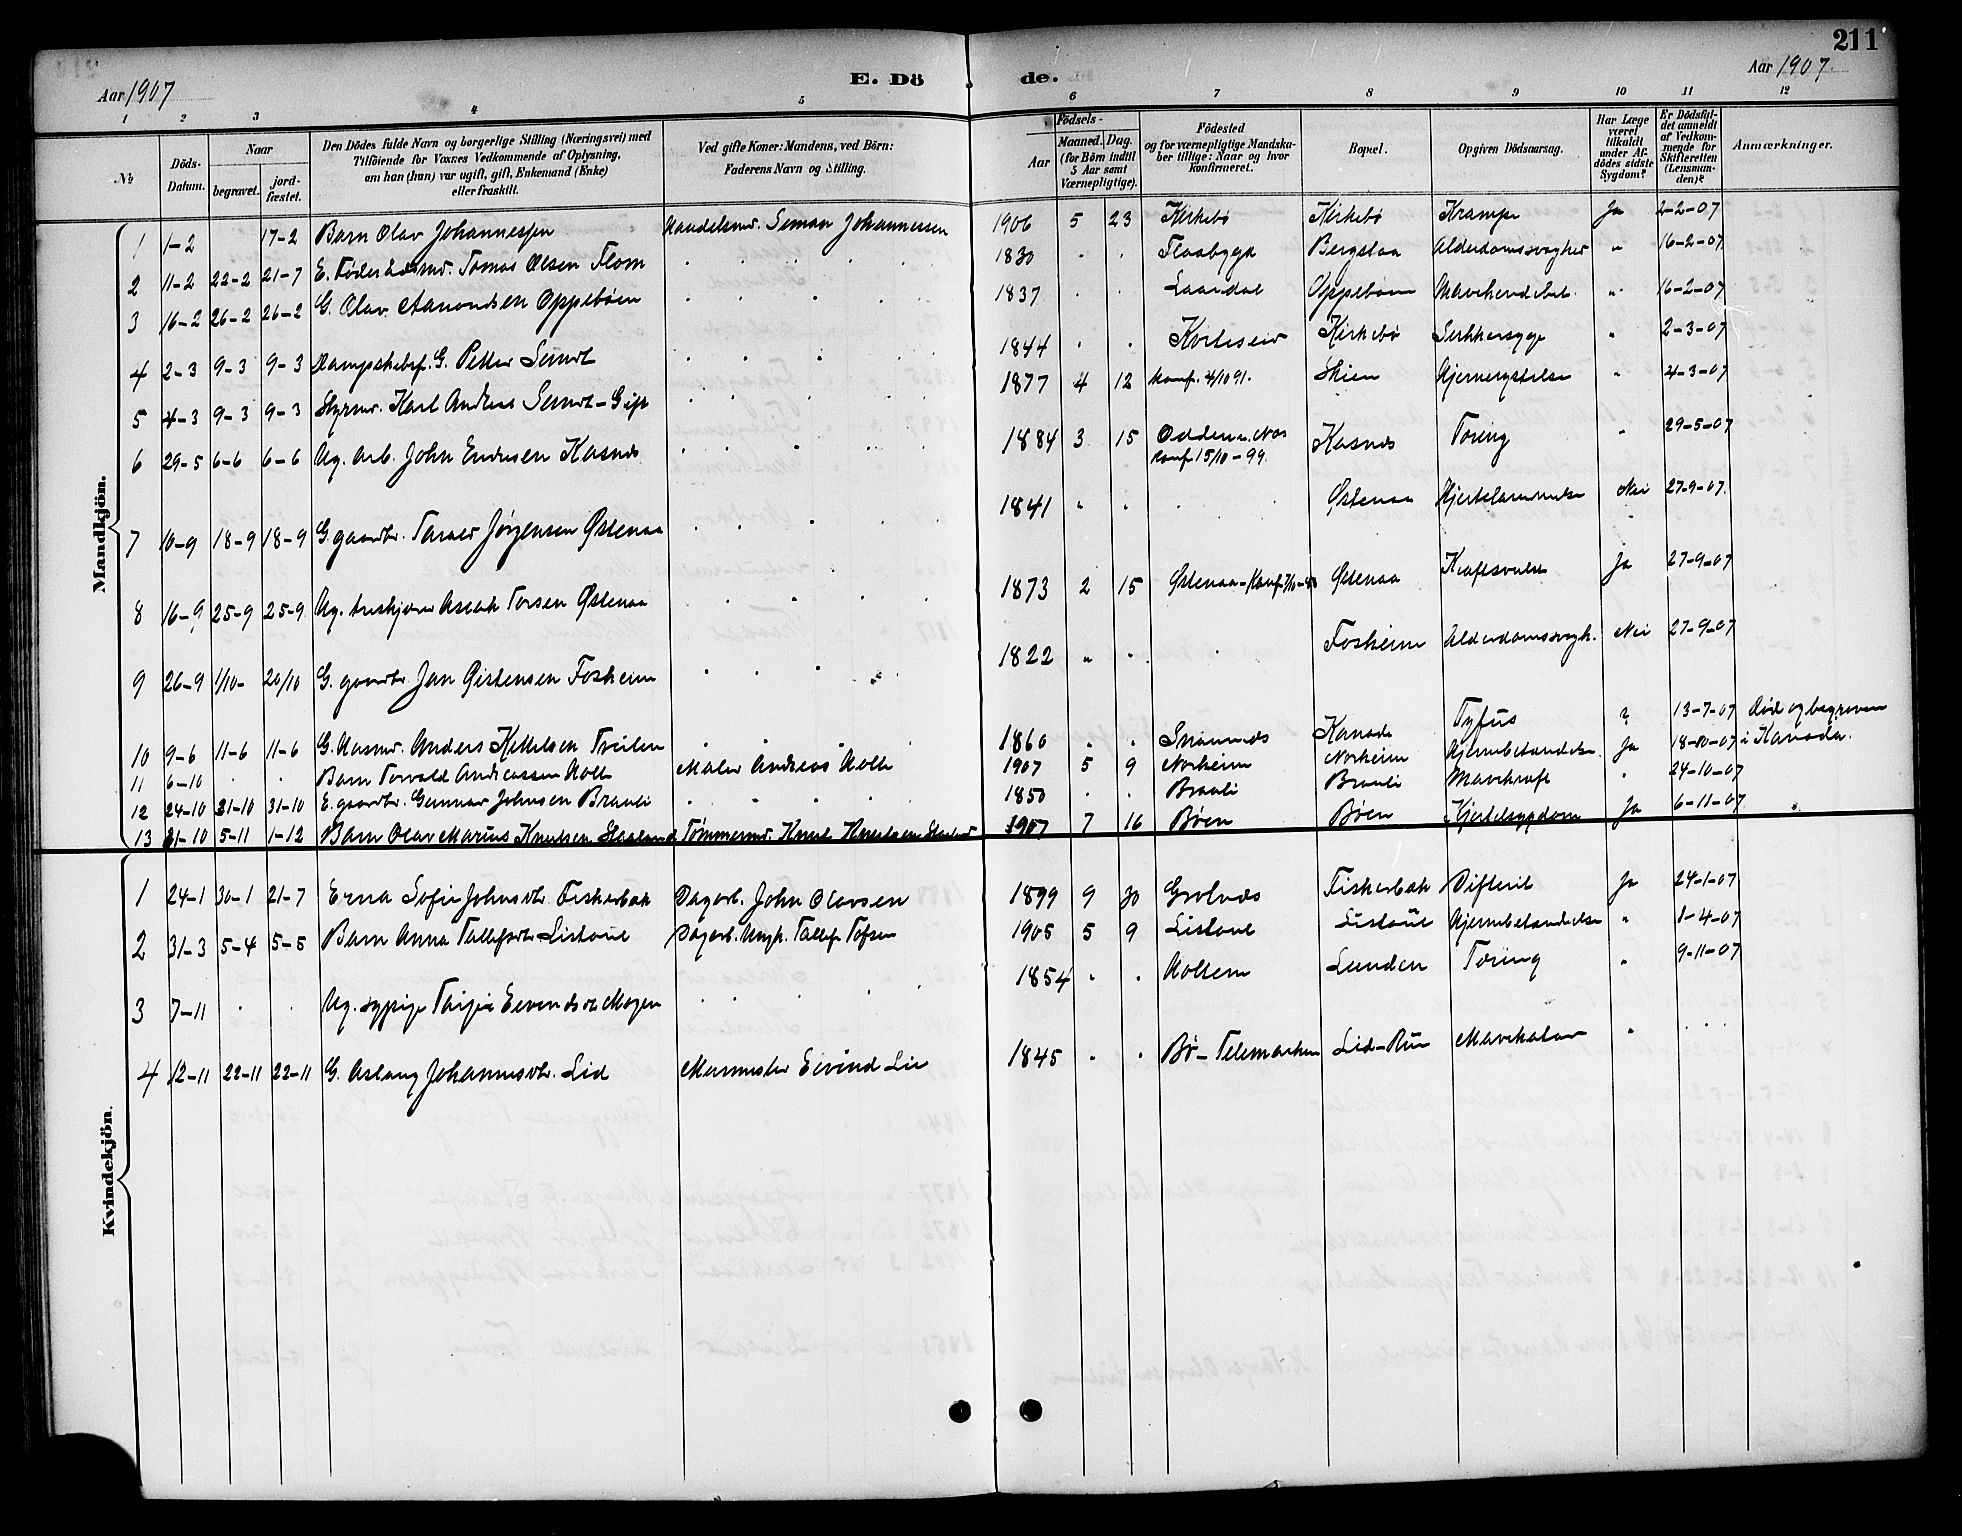 211
Aar 1907
E. Dö
de.
Aar 1907.
1 2 3 4 5 6 7 8 9 10 11 12
№
Döds-Datum.
Naar
begravet.
jord-fæstet.
Den Dödes fulde Navn og borgerlige Stilling (Næringsvei) med
Tilföiende for Voxnes Vedkommende af Oplysning,
om han (hun) var ugift, gift, Enkemand (Enke)
eller fraskilt.
Ved gifte Koner: Mandens, ved Börn:
Faderens Navn og Stilling.
Födsels-
Aar
Maaned.
Dag.
(for Börn indtil
5 Aar samt
Værnepligtige).
Födested
og for værnepligtige Mandska-
ber tillige: Naar og hvor
konfirmeret.
Bopæl.
Opgiven Dödsaarsag.
Har Læge
været
tilkaldt
under Af-
dödes sidste
Sygdom?
Er Dödsfal-
det anmeldt
af Vedkom-
mende for
Skifteretten
(Lensman-
den)?
Anmærkninger.
Mandkjön.
1 1-2 17-2 Barn Olav Johannessen Handelsmd. Simon Johannessen 1906 5 23 Kirkebø Kirkebø Krampe Ja 2-2-07
2 11-2 22-2 21-7 E. Tomas Olsen Flom 1830 Flaabygd Bergstaa " 16-2-07
3 16-2 26-2 26-2 G. Olav Aamondsen Oppebøen 1837 Laardal Oppebøen " 16-2-07
4 2-3 9-3 9-3 G. Petter Semdt 1844 Kviteseid Kirkebø " 2-3-07
5 4-3 9-3 9-3 Styrmd. Karl Andreas Semdt - Gift 1877 4 12 Konf. 4/10 91. Skien Hjernerystelse " 4-3-07
6 29-5 6-6 6-6 Ug. Arb. John Endresen Kasnes 1884 3 15 Konf. 15/10-99. Kasnes Tæring " 29-5-07
7 10-9 18-9 18-9 G. gaardbr. Jørgensen Østenaa 1841 Østenaa Hjertelammelse Nei 27-9-07.
8 16-9 25-9 25-9 Ug. Aslak Torsen Østenaa 1873 2 15 Østenaa - Konf. Østenaa Kræftsvulst Ja 27-9-07
9 26-9 1/10- 20/10 G. gaardbr. Jan Gistensen Foskeim 1822 Foskeim Alderdomssvagh. Nei 27-9-07
10 9-6 11-6 11-6 G. Husmd. Anders Kittelsen Tveiten 1860 Kanada Tyfus ? 13-7-07 Død og begraven i Kanada.
11 6-10 Barn Torvald Andreassen Maler Andreas 1907 5 9 Norheim Norheim Hjernebetændelse Ja 18-10-07
12 24-10 31-10 31-10 E. gaardbr. Gunnar Johnsen Braali 1850 Braali Braali Mavekræft " 24-10-07
13 31-10 5-11 1-12 Barn Olav Marius Knutsen Tømmermd. Knut 1907 7 16 Bøen Bøen Hjertesygdom Ja 6-11-07
Kvindekjön.
1 24-1 30-1 21-7 Erna Sofie Johnsdtr. Fiskerbak Dagarb. John Olavsen 1899 9 30 Grotnes Fiskerbak Difterit Ja 24-1-07
2 31-3 5-4 5-5 Barn Anna Tallefsdtr. Listaul Dagarb. Ungk. Tallef Tofsen 1905 5 9 Listaul Listaul Hjernebetændelse " 1-4-07
3 7-11 Ug. sypige Eivendsdt. Mogen 1854 Holtem Lunden Tæring " 9-11-07
4 12-11 22-11 22-11 G. Aslaug Johannesdtr. Lid Murmester Eivind Lid 1845 Bø - Telemarken Lid - Mavekatar "